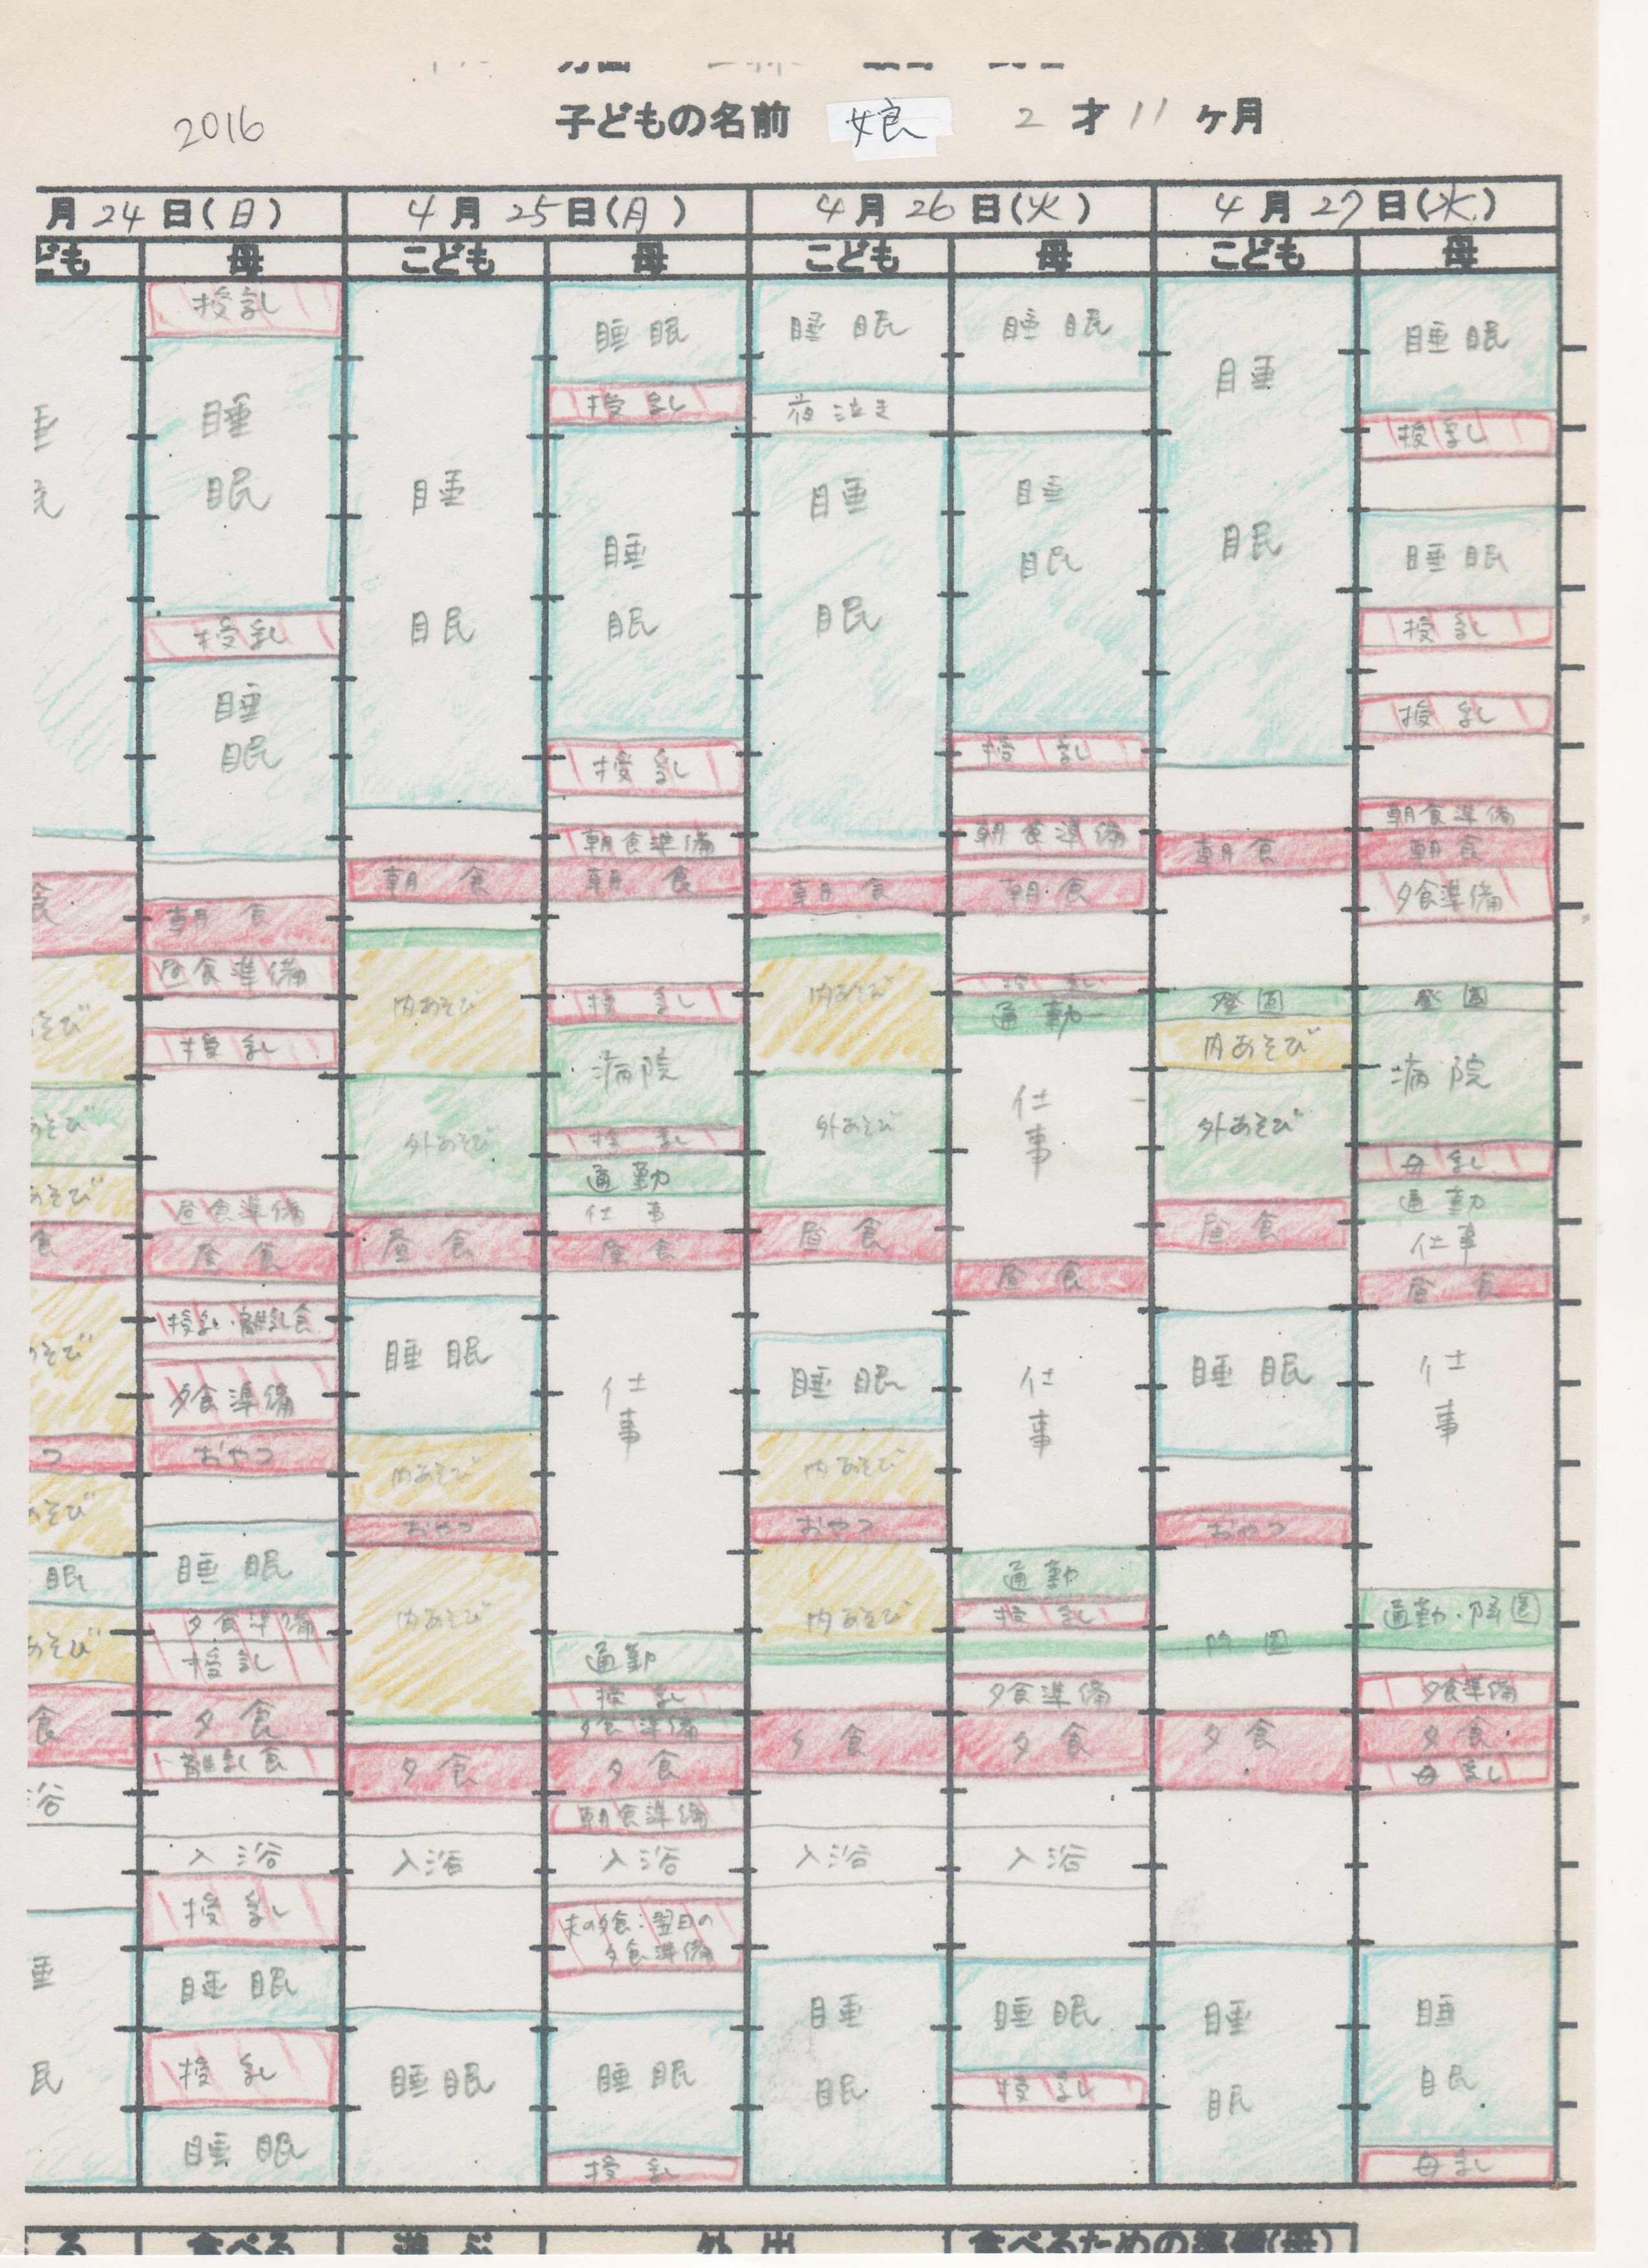 2016 子どもの名前 娘 2才11ヶ月
月24日(日) 4月25日(月) 4月26日(火) 4月27日(水)
ども 母 こども 母 こども 母 こども 母
授乳
睡眠
授乳
睡眠
朝食
昼食準備
授乳
昼食準備
昼食
授乳・離乳食
夕食準備
おやつ
睡眠
夕食準備
授乳
夕食
離乳食
入浴
授乳
睡眠
授乳
睡眠
睡眠
朝食
内あそび
外あそび
昼食
睡眠
内あそび
おやつ
内あそび
夕食
入浴
睡眠
睡眠
授乳
睡眠
授乳
朝食準備
朝食
授乳
病院
授乳
通勤
仕事
昼食
仕事
通勤
授乳
夕食準備
夕食
朝食準備
入浴
夫の夕食・翌日の
夕食準備
睡眠
授乳
睡眠
夜泣き
睡眠
朝食
内あそび
外あそび
昼食
睡眠
内あそび
おやつ
内あそび
夕食
入浴
睡眠
睡眠
睡眠
授乳
朝食準備
朝食
授乳
通勤
仕事
昼食
仕事
通勤
授乳
夕食準備
夕食
入浴
睡眠
授乳
睡眠
朝食
登園
内あそび
外あそび
昼食
睡眠
おやつ
降園
夕食
睡眠
睡眠
授乳
睡眠
授乳
授乳
朝食準備
朝食
夕食準備
登園
病院
母乳
通勤
仕事
昼食
仕事
通勤・降園
夕食準備
夕食
母乳
睡眠
母乳
る 食べる 遊ぶ 外出 食べるための準備(母)